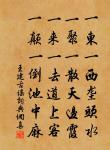 一東一西壟頭水
一聚一散天邊霞
一去一來道上客
一顛一倒池中麻
王建古謠詞典網書